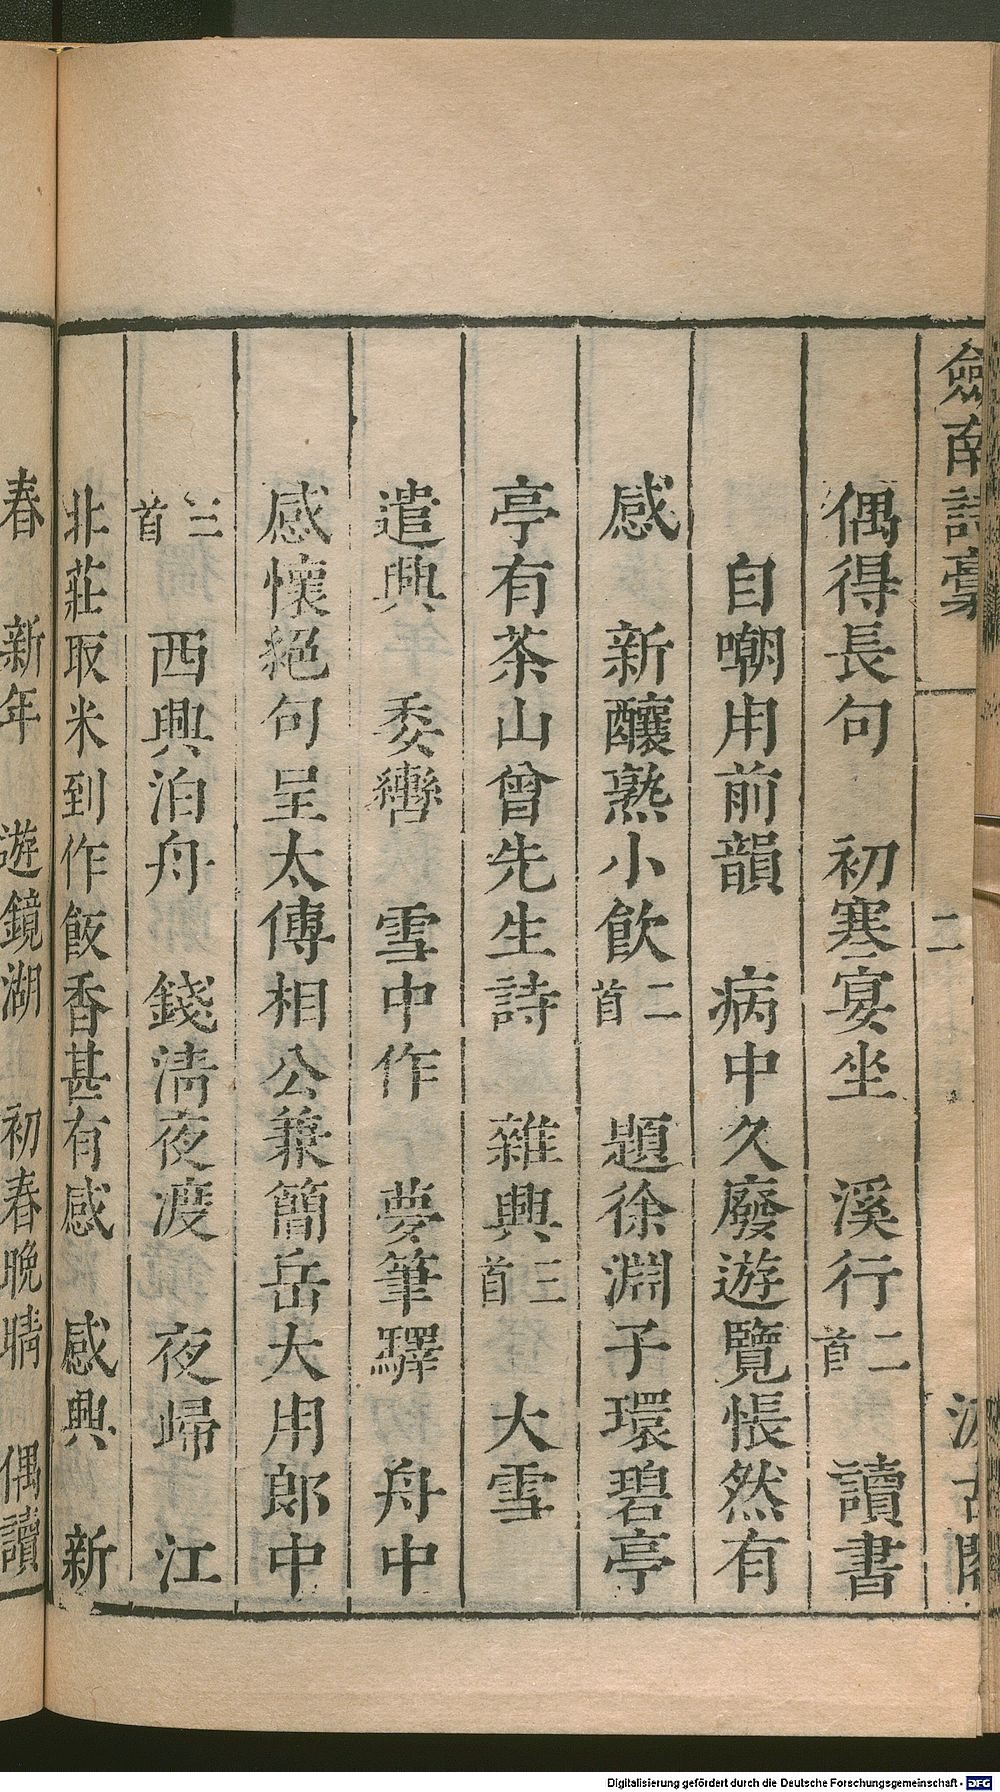 劍南詩藁
二
汲古閣
偶得長句　初寒宴坐　溪行二首　讀書
自嘲用前韻　病中久廢遊覽悵然有
感　新釀熟小飲二首　題徐淵子環碧亭
亭有茶山曾先生詩　雜興三首　大雪
遣興　委轡　雪中作　夢筆驛　舟中
感懷絕句呈太傅相公兼簡岳大用郎中
三首　西興泊舟　錢清夜渡　夜歸　江
北莊取米到作飯香甚有感　感興　新
春　新年　遊鏡湖　初春晚晴　偶讀
Digitalisierung gefördert durch die Deutsche Forschungsgemeinschaft - DFG